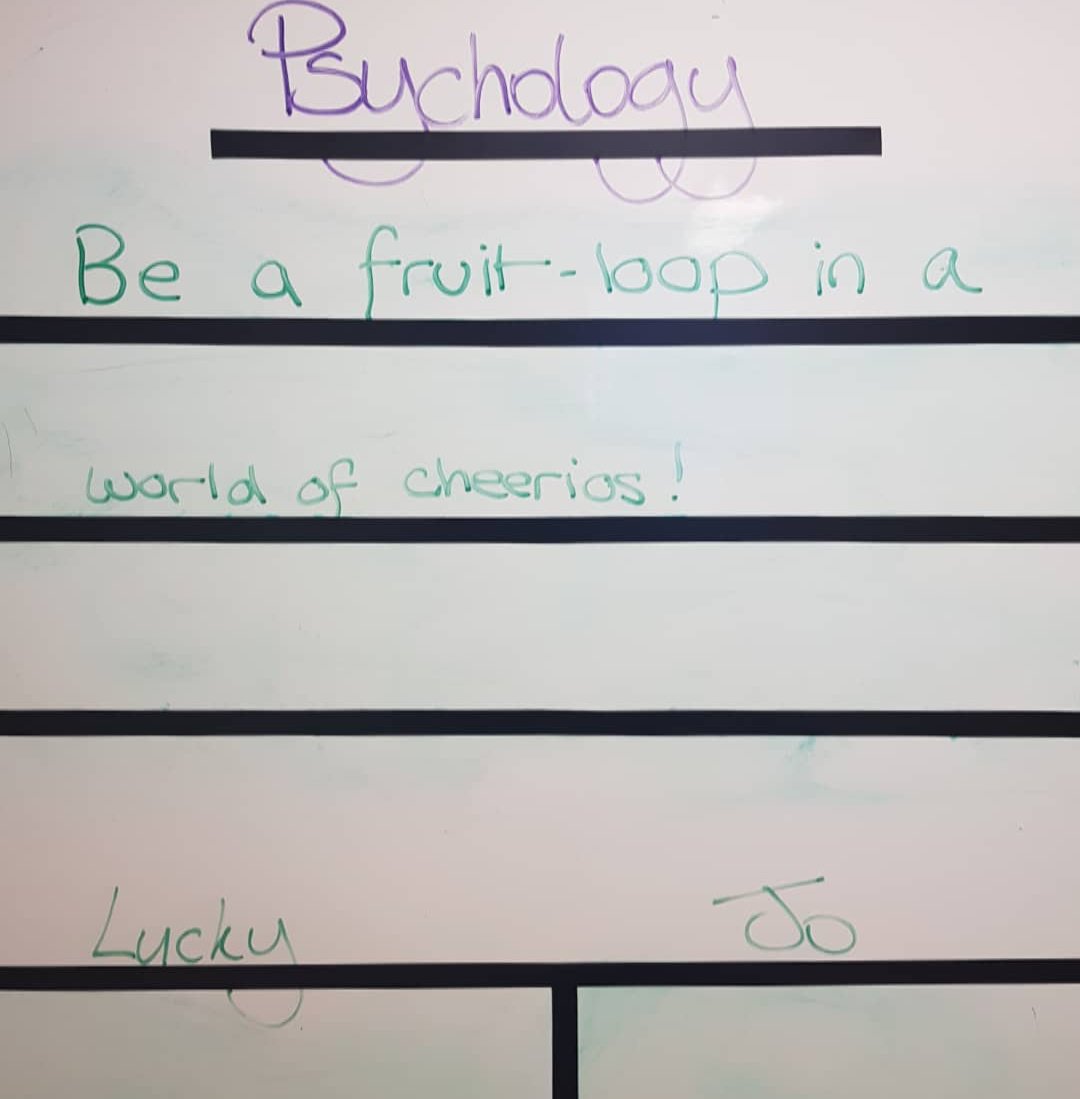 Psychology
Be a fruit-loop in a
world of cheerios!
Lucky Jo